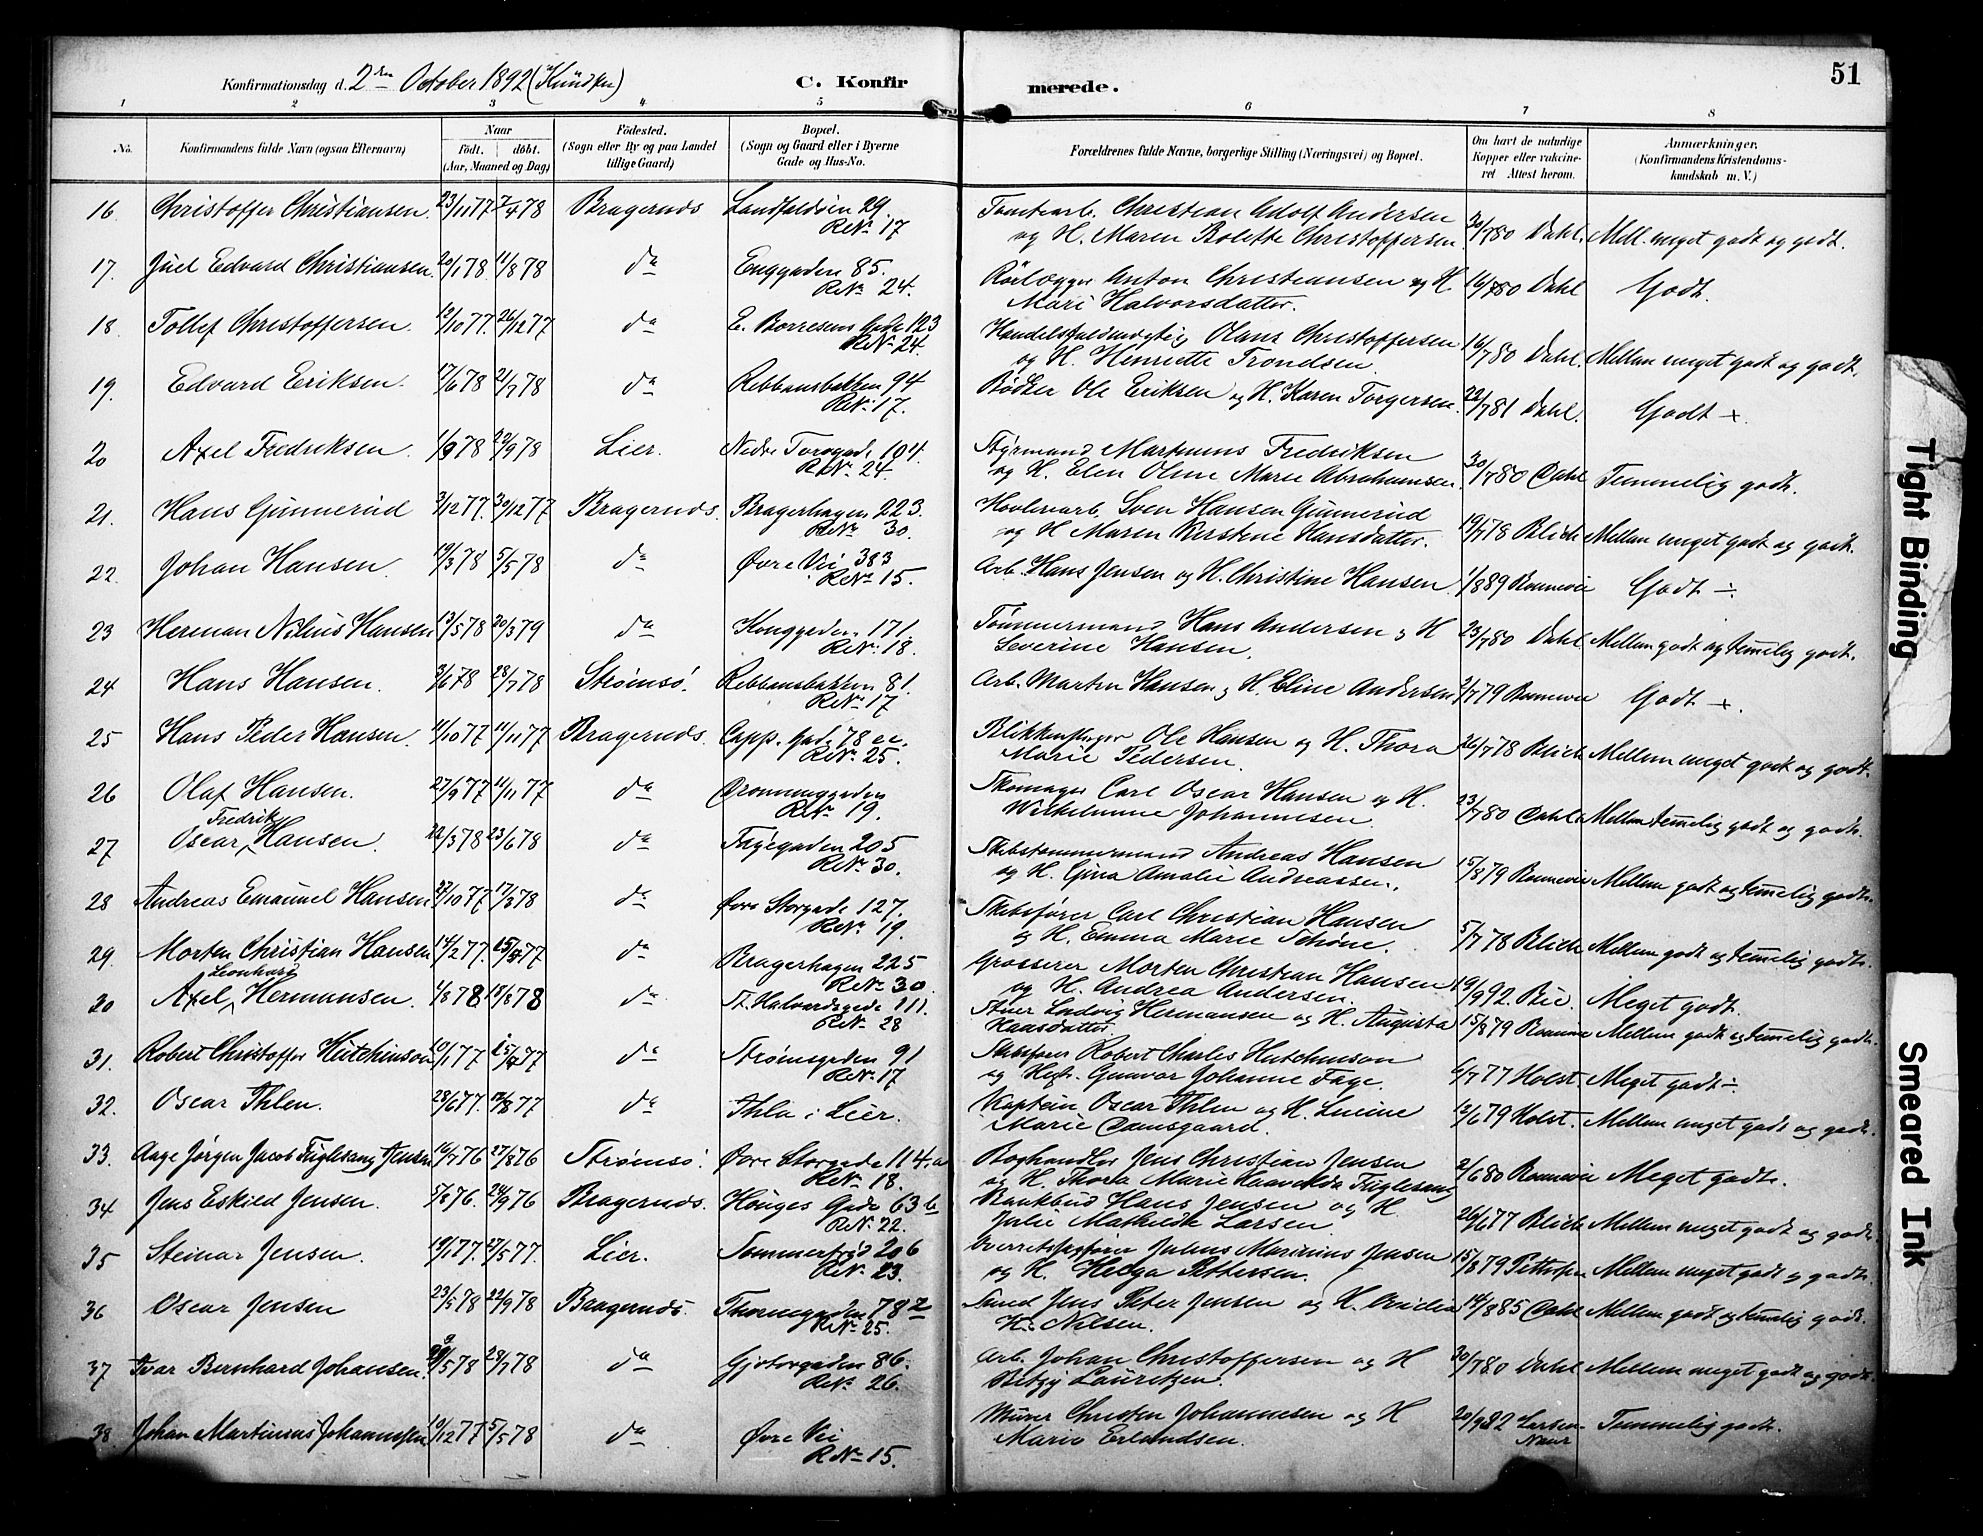 Konfirmationsdag d. 2den October 1892
C. Konfirmerede.
51
1 2 3 4 5 6 7 8
No.
Konfirmandens fulde Navn (ogsaa Efternavn)
Naar
födt. döbt.
(Aar, Maaned og Dag)
Födested.
(Sogn eller By og paa Landet
tillige Gaard)
Bopæl.
(Sogn og Gaard eller i Byerne
Gade og Hus-No.
Forældrenes fulde Navne, borgerlige Stilling (Næringsvei) og Bopæl.
Om havt de naturlige
Kopper eller vakcine-
ret Attest herom.
Anmærkninger.
(Konfirmandens Kristendoms-
kundskab m. V.)
16 Christoffer Christiansen. 23/11 77 7/4 78 Bragernæs Landfaldöen 29. Tomtearb. Christian Adolf Andersen
R.N. 17 og H. Maren Bolette Christoffersen 30/7 80 Dahl. Mell. meget godt og godt.
17. Juel Edvard Christiansen. 20/1 78 11/8 78 do Enggaden 85. Rörlægger Anton Christiansen og H.
R.N. 24. Mari Halvorsdatter. 16/7 80 Dahl Godt.
18. Tollef Christoffersen. 12/10 77. 26/12 77 do E. Borresens Gade 123 Handelsfuldmægtig Olaus Christoffersen
R.N. 24. og H. Henriette Trondsen. 16/7 80 Dahl Mellem meget godt og godt.
19. Edvard Eriksen. 17/6 78 21/7 78 do Ribbansbakken 94 Bödker Ole Eriksen og H. Karen Torgersen.
R.N. 17. 22/7 81 Dahl. Godt +
20 Axel Fredriksen. 1/9 78 22/9 78 Lier. Nedre Torvgade 104. Styrmand Martinius Fredriksen
R.N. 24. og H. Elen Oline Marie Abrahamsen. 30/7 80 Dahl Temmelig godt.
21. Hans Gunnerud 3/12 77. 30/12 77 Bragernæs. Bragerhagen 223. Hövleriarb. Sven Hansen Gunnerud
R.N. 30. og H Maren Kirstine Hansdatter. 19/7 78 Blich Mellem meget godt og godt.
22. Johan Hansen 19/3 78 5/5 78 do Øvre Vei 383 Arb. Hans Jensen og H. Christine Hansen
R.N. 15. 1/8 89 Godt ÷
23 Herman Nilius Hansen 13/5 78 20/3 79 do Konggaden 171. Tømmermand Hans Andersen og H
R.N. 18. Severine Hansen. 23/7 80 Dahl Mellem godt og temelig godt.
24 Hans Hansen. 3/6 78 28/7 78 Strømsö. Ribbansbakken 81. Arb. Martin Hansen og H. Eline Andersen
R.N. 17 2/7 79 Godt +.
25 Hans Peder Hansen. 4/10 77 11/11 77 Bragernæs. Capp. Gad. 78 Blikkenslager Ole Hansen og H. Thora
R.N. 25. Marie Pedersen. 26/7 78 Blich Mellem meget godt og godt.
26 Olaf Hansen. 27/9 77 11/11 77 do Dronninggaden Skomager Carl Oscar Hansen og H.
R.N. 19. Wilhelmine Johannesen. 23/7 80 Dahl Mellem temelig godt og godt.
27 Oscar Fredrik Hansen. 22/3 78 23/6 78 do Fagegaden 205 Skibstømmermand Andreas Hansen
R.N. 30. og H. Gina Amalie Andreassen. 15/8 79 Mellem godt og temelig godt.
28 Andreas Emanuel Hansen 27/10 77 17/3 78 do Øvre Storgade 127. Skibsfører Carl Christian Hansen
R.N. 19. og H. Emma Marie Schöne. 5/7 78 Blich Mellem godt og temelig godt.
29. Morten Christian Hansen 14/2 77. do Bragerhagen 225 Grosserer Morten Christian Hansen
R.N. 30. og H. Andrea Andersen. 19/9 92. Bie. Meget godt.
30 Axel Leonhard Hermansen. 4/8 78 do St. Halvardsgade 111. Stuer Ludvig Hermansen og H. Augusta
R.N. 28 15/8 79 Mellem godt og temelig godt.
31. Robert Christoffer Hutchinson 20/1 77 do Strømsgaden 91 Skibsfører Robert Charles Hutchinson
R.N. 17 og Gunvor Johanne Fage. 6/7 77 Holst. Meget godt ÷
32. Oscar Ihlen. 28/6 77. 12/8 77 do Ihla i Lier. Kaptein Oscar Ihlen og H. Lucine
Marie Damsgaard. 12/6 79 Holst. Mellem meget godt og godt.
33. Aage Jørgen Jacob Fuglesang Jensen 16/7 76 27/8 76 Strømsö. Øvre Storgade 114. a Boghandler Jens Christian Jensen
R.N. 18. og H. Thora Marie Fuglesang 2/6 80 Meget godt.
34 Jens Eskild Jensen. 5/8 76. 24/9 76 Bragernæs. Hauges Gade 63 b Bankbud Hans Jensen og H.
R.N. 22. Julie Mathilde Larsen 26/6 77 Blich Mellem meget godt og godt.
35 Steinar Jensen. 19/1 77. 27/5 77. Lier. Sommerfryd 206 Overretssagfører Julius Marinius Jensen
R.N. 23. og H. Helga Pettersen. 15/8 79 Mellem meget godt og godt.
36 Oscar Jensen 23/5 78 22/9 78 Bragernæs. Thornegaden 782 Smed Jens Peter Jensen og H.
R.N. 25. Nilsen. 14/8 85 Dahl Mellem godt og temelig godt.
37 Ivar Bernhard Johansen. 28/7 78 do Gjetergaden 86. Arb. Johan Christoffersen og H
R.N. 26. Betzy Lauritzen. 30/7 80 Dahl Mellem meget godt og godt.
38. Johan Martinius Johannesen 10/12 77 5/5 78 do Øvre Vei Murer Christen Johannesen og H
R.N. 15. Marie Erlandsen. 20/9 82 Larsen Temmelig godt.
Tight Binding
Smeared Ink